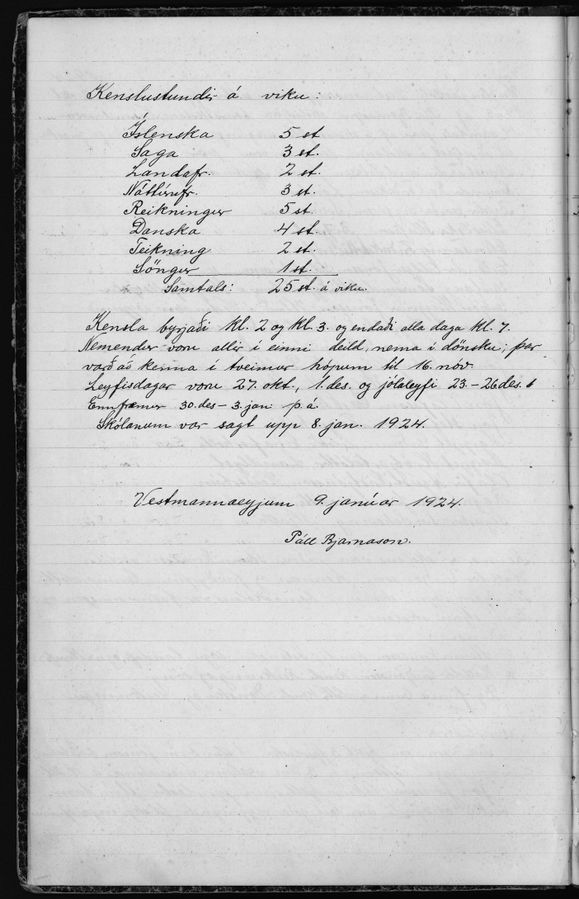 Kenslustundir á viku:
Íslenska 5 st
Saga 3 st.
Landafr. 2 st.
Náttúrufr. 3 st.
Reikningur 5 st.
Danska 4 st.
Teikning 2 st.
Söngur 1 st.
Samtals: 25 st. á viku.
Kensla byrjaði kl. 2 og kl. 3. og endaði alla daga kl. 7.
Nemendur voru allir í einni deild, nema í dönsku; þar
varð að kenna í tveimur hópum til 16. nóv.
Leyfisdagar voru 27. okt, 1. des. og jólaleyfi 23.-26. des.
Ennfremur 30. des - 3. jan þ. á.
Skólanum var sagt upp 8. jan. 1924.
Vestmannaeyjum 9. janúar 1924.
Páll Bjarnason.